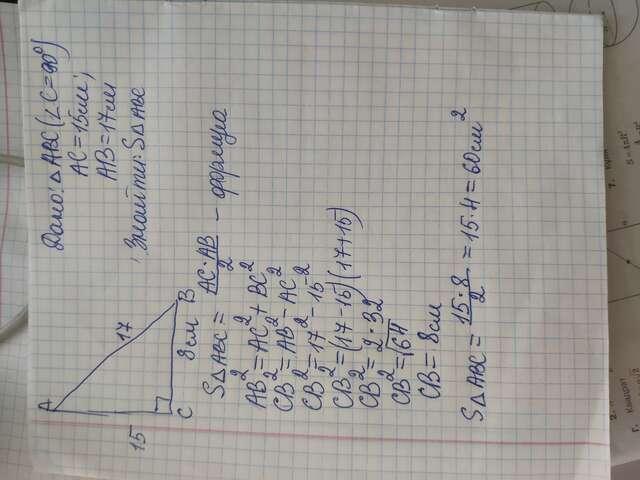 Дано: △ABC (∠C=90°)
AC=15см;
AB=17см
Знайти: S△ABC
A
17
15
C
8см
B
S△ABC = AC·AB/2 - формула
AB²=AC²+BC²
CB²=AB²-AC²
CB²=17²-15²
CB²=(17-15)(17+15)
CB²=2·32
CB²=√64
CB=8см
S△ABC = 15·8/2 = 15·4=60см²